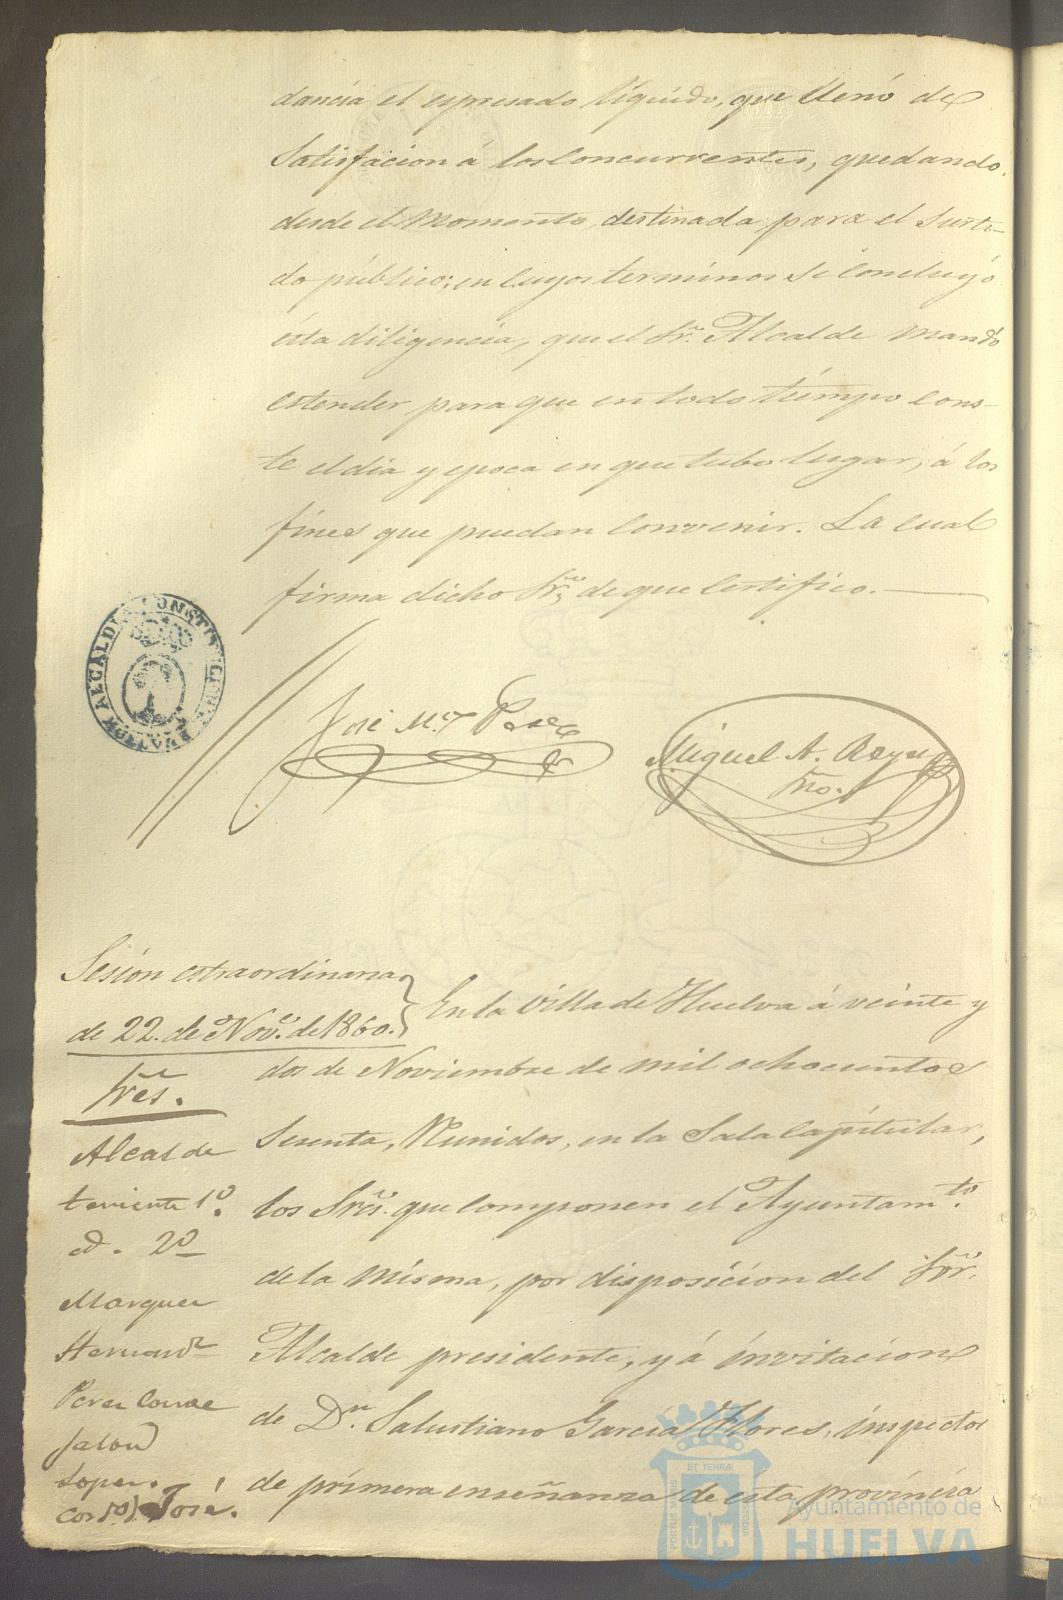 dancia el espresado líquido, que llenó de
Satisfacion á los Concurrentes, quedando
desde el momento, destinada para el surti-
do público; en cuyos terminos se concluyó
esta diligencia, que el Sr. Alcalde mandó
estender para que en todo tiempo cons-
te el dia y epoca en que tubo lugar, á los
fines que puedan convenir. La cual
firma dicho Sr. de que Certifico.
ALCALDIA CONSTITUCIONAL
José Mª Perez
Miguel A.
Srio.
Sesión estraordinaria
de 22. de Nove. de 1860.
Sres.
Alcalde
teniente 1º.
id. 2º
Marquez
Hernandz
Perez Conde
Jalon
Lopez.
José.
En la Villa de Huelva á veinte y
dos de Noviembre de mil ochocientos
Sesenta, Reunidos, en la Sala Capitular,
los Sres. que componen el Ayuntamto.
de la misma, por disposicion del Sor.
Alcalde presidente, y á invitacion
de Dn. Salustiano García Flores, inspector
de primera enseñanza de esta provincia
Ayuntamiento de
HUELVA